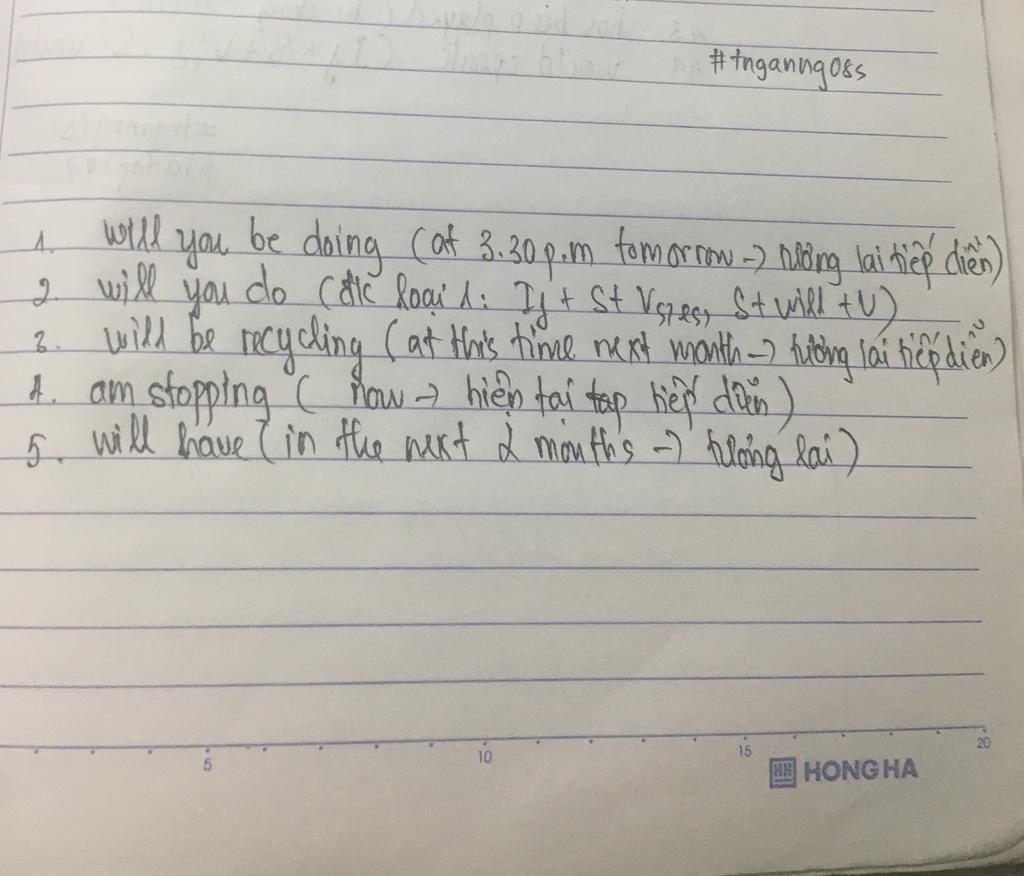 #tnganng08s
1. will you be doing (at 3.30 p.m tomorrow → tương lai tiếp diễn)
2. will you do (đk loại 1: If + S + Vs,es, S + will + V)
3. will be recycling (at this time next month → tương lai tiếp diễn)
4. am stopping ( now → hiện tại tạp tiếp diễn)
5. will have (in the next 2 months → tương lai)
5 10 15 20
HH HONG HA